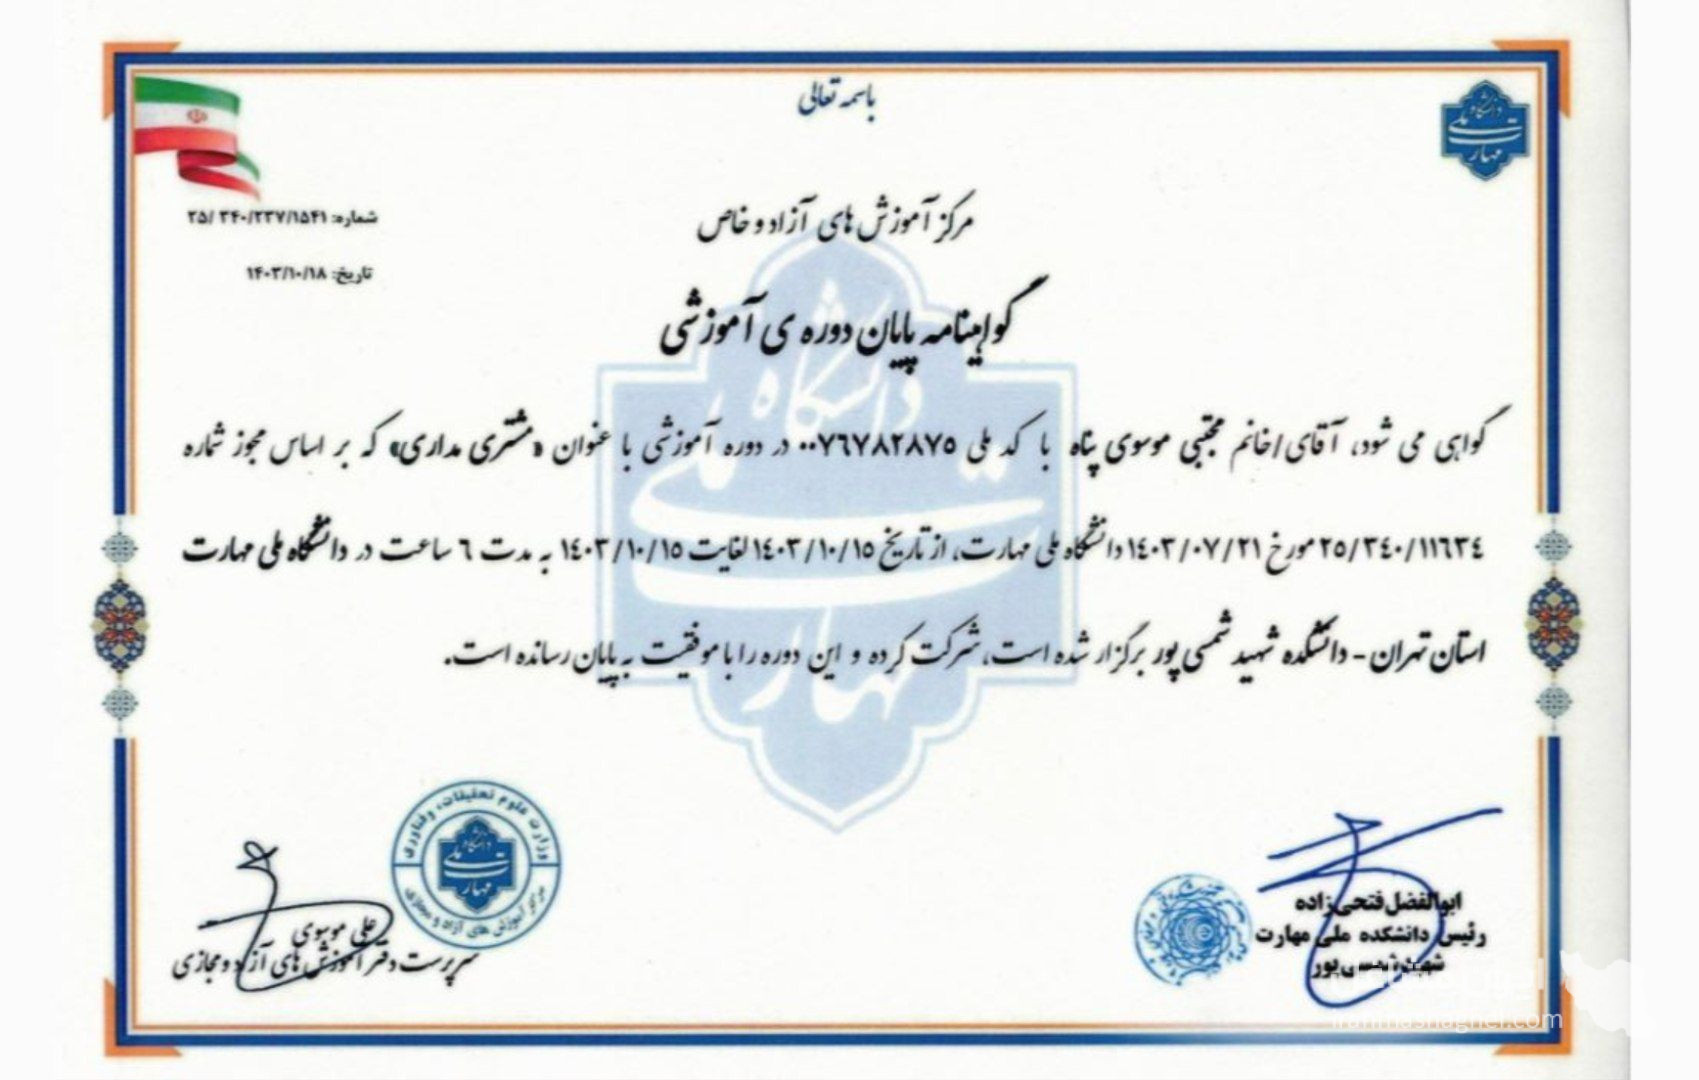 باسمه تعالی
دانشگاه ملی مهارت
شماره: ۲۵/ ۳۴۰/۲۳۷/۱۵۴۱
تاریخ: ۱۴۰۳/۱۰/۱۸
مرکز آموزش های آزاد و خاص
گواهینامه پایان دوره ی آموزشی
گواهی می شود، آقای/خانم مجتبی موسوی پناه با کد ملی ۰۰۷۶۷۸۲۸۷۵ در دوره آموزشی با عنوان «مشتری مداری» که بر اساس مجوز شماره
۲۵/۳۴۰/۱۱۶۳۴ مورخ ۱۴۰۳/۰۷/۲۱ دانشگاه ملی مهارت، از تاریخ ۱۴۰۳/۱۰/۱۵ لغایت ۱۴۰۳/۱۰/۱۵ به مدت ۶ ساعت در دانشگاه ملی مهارت
استان تهران - دانشکده شهید شمسی پور برگزار شده است، شرکت کرده و این دوره را با موفقیت به پایان رسانده است.
دانشگاه ملی مهارت
ابوالفضل فتحی زاده
رئیس دانشکده ملی مهارت
شهید شمسی پور
وزارت علوم تحقیقات، و فناوری
دانشگاه ملی مهارت
مرکز آموزش های آزاد و مجازی
علی موسوی
سرپرست دفتر آموزش های آزاد و مجازی
iranmashaghel.com